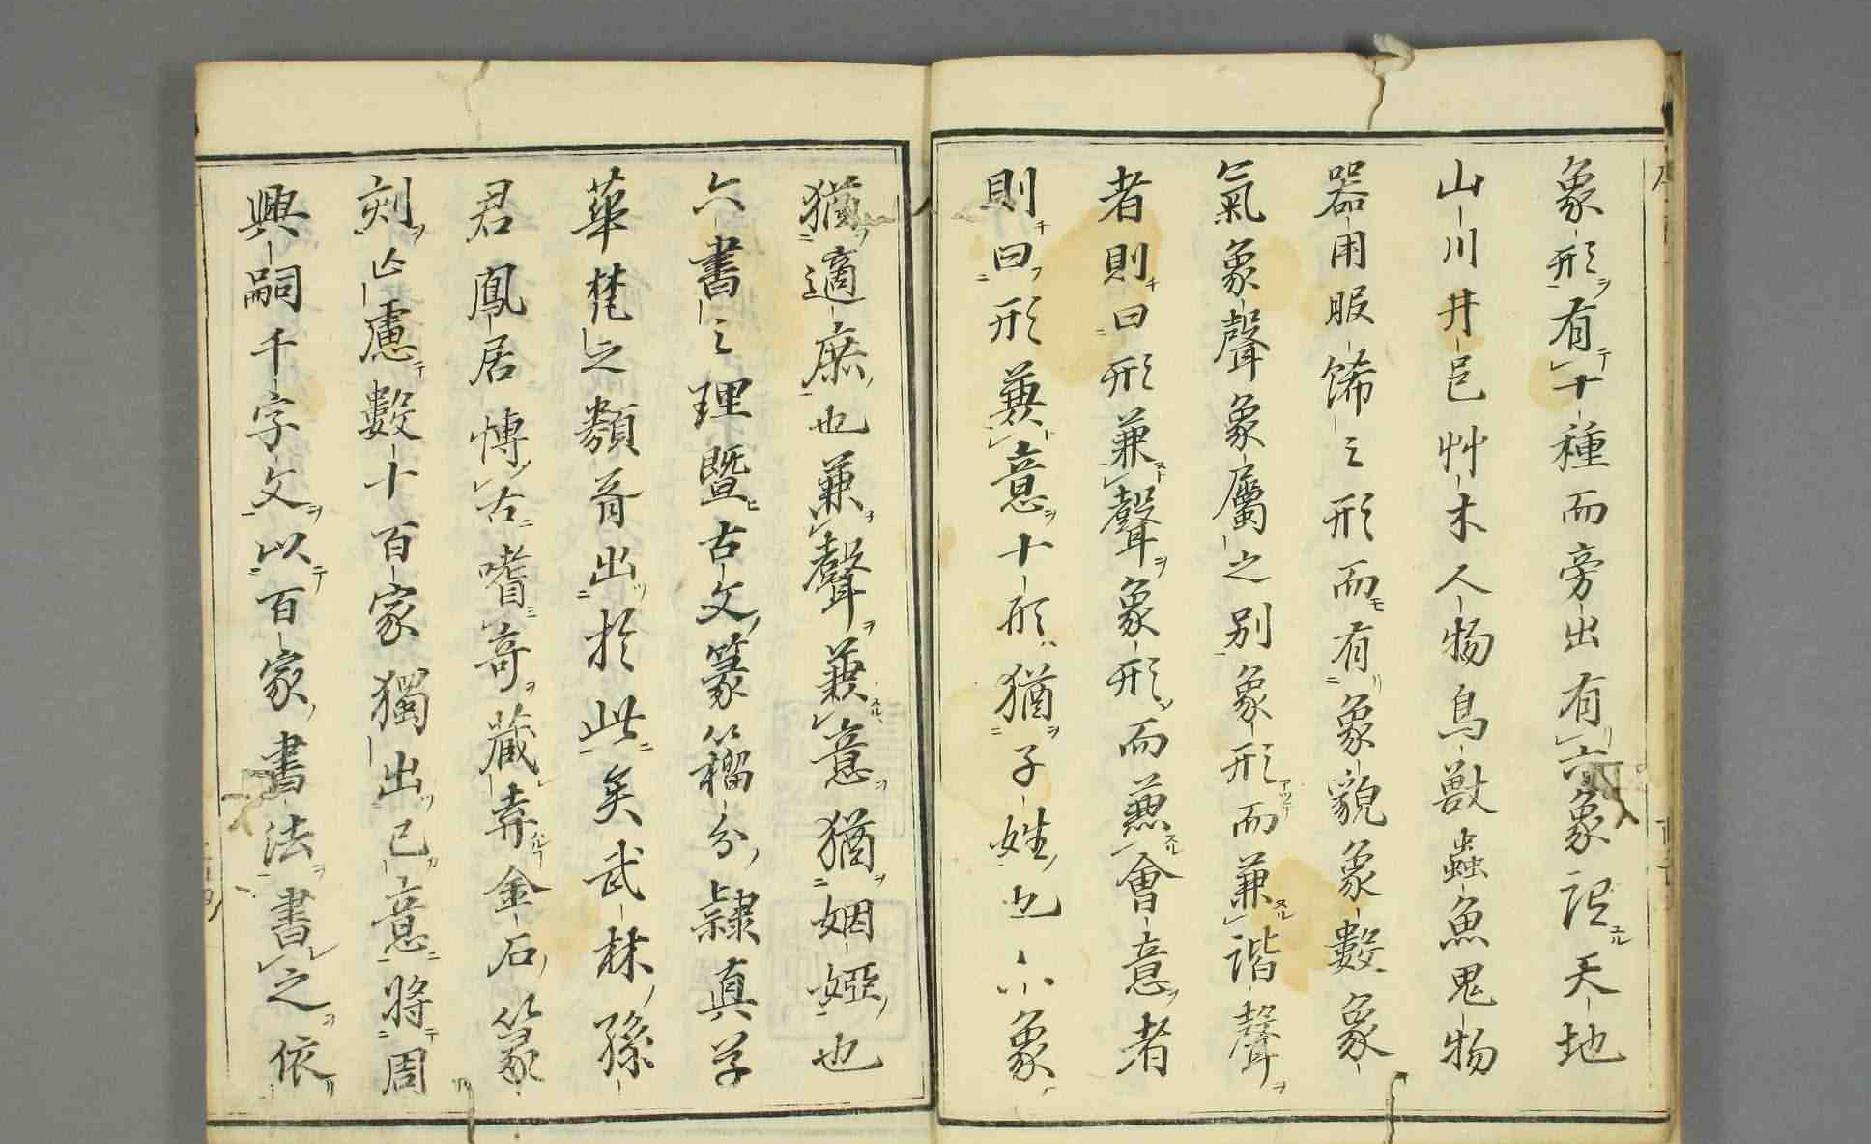 象形有十種而旁出有六象設天地
山川井邑艸木人物鳥獸蟲魚鬼物
器用服飾之形而有象貌象數象
氣象聲象屬之別象形而兼諧聲
者則曰形兼聲象形而兼會意者
則曰形兼意十形猶子姓也六象
猶適庶也兼聲兼意猶姻婭也
六書之理暨古文篆籀分隸真草
華梵之類胥出於此矣武林孫
君鳳居博古嗜奇藏弆金石篆
刻亡慮數十百家獨出己意將周
興嗣千字文以百家書法書之依